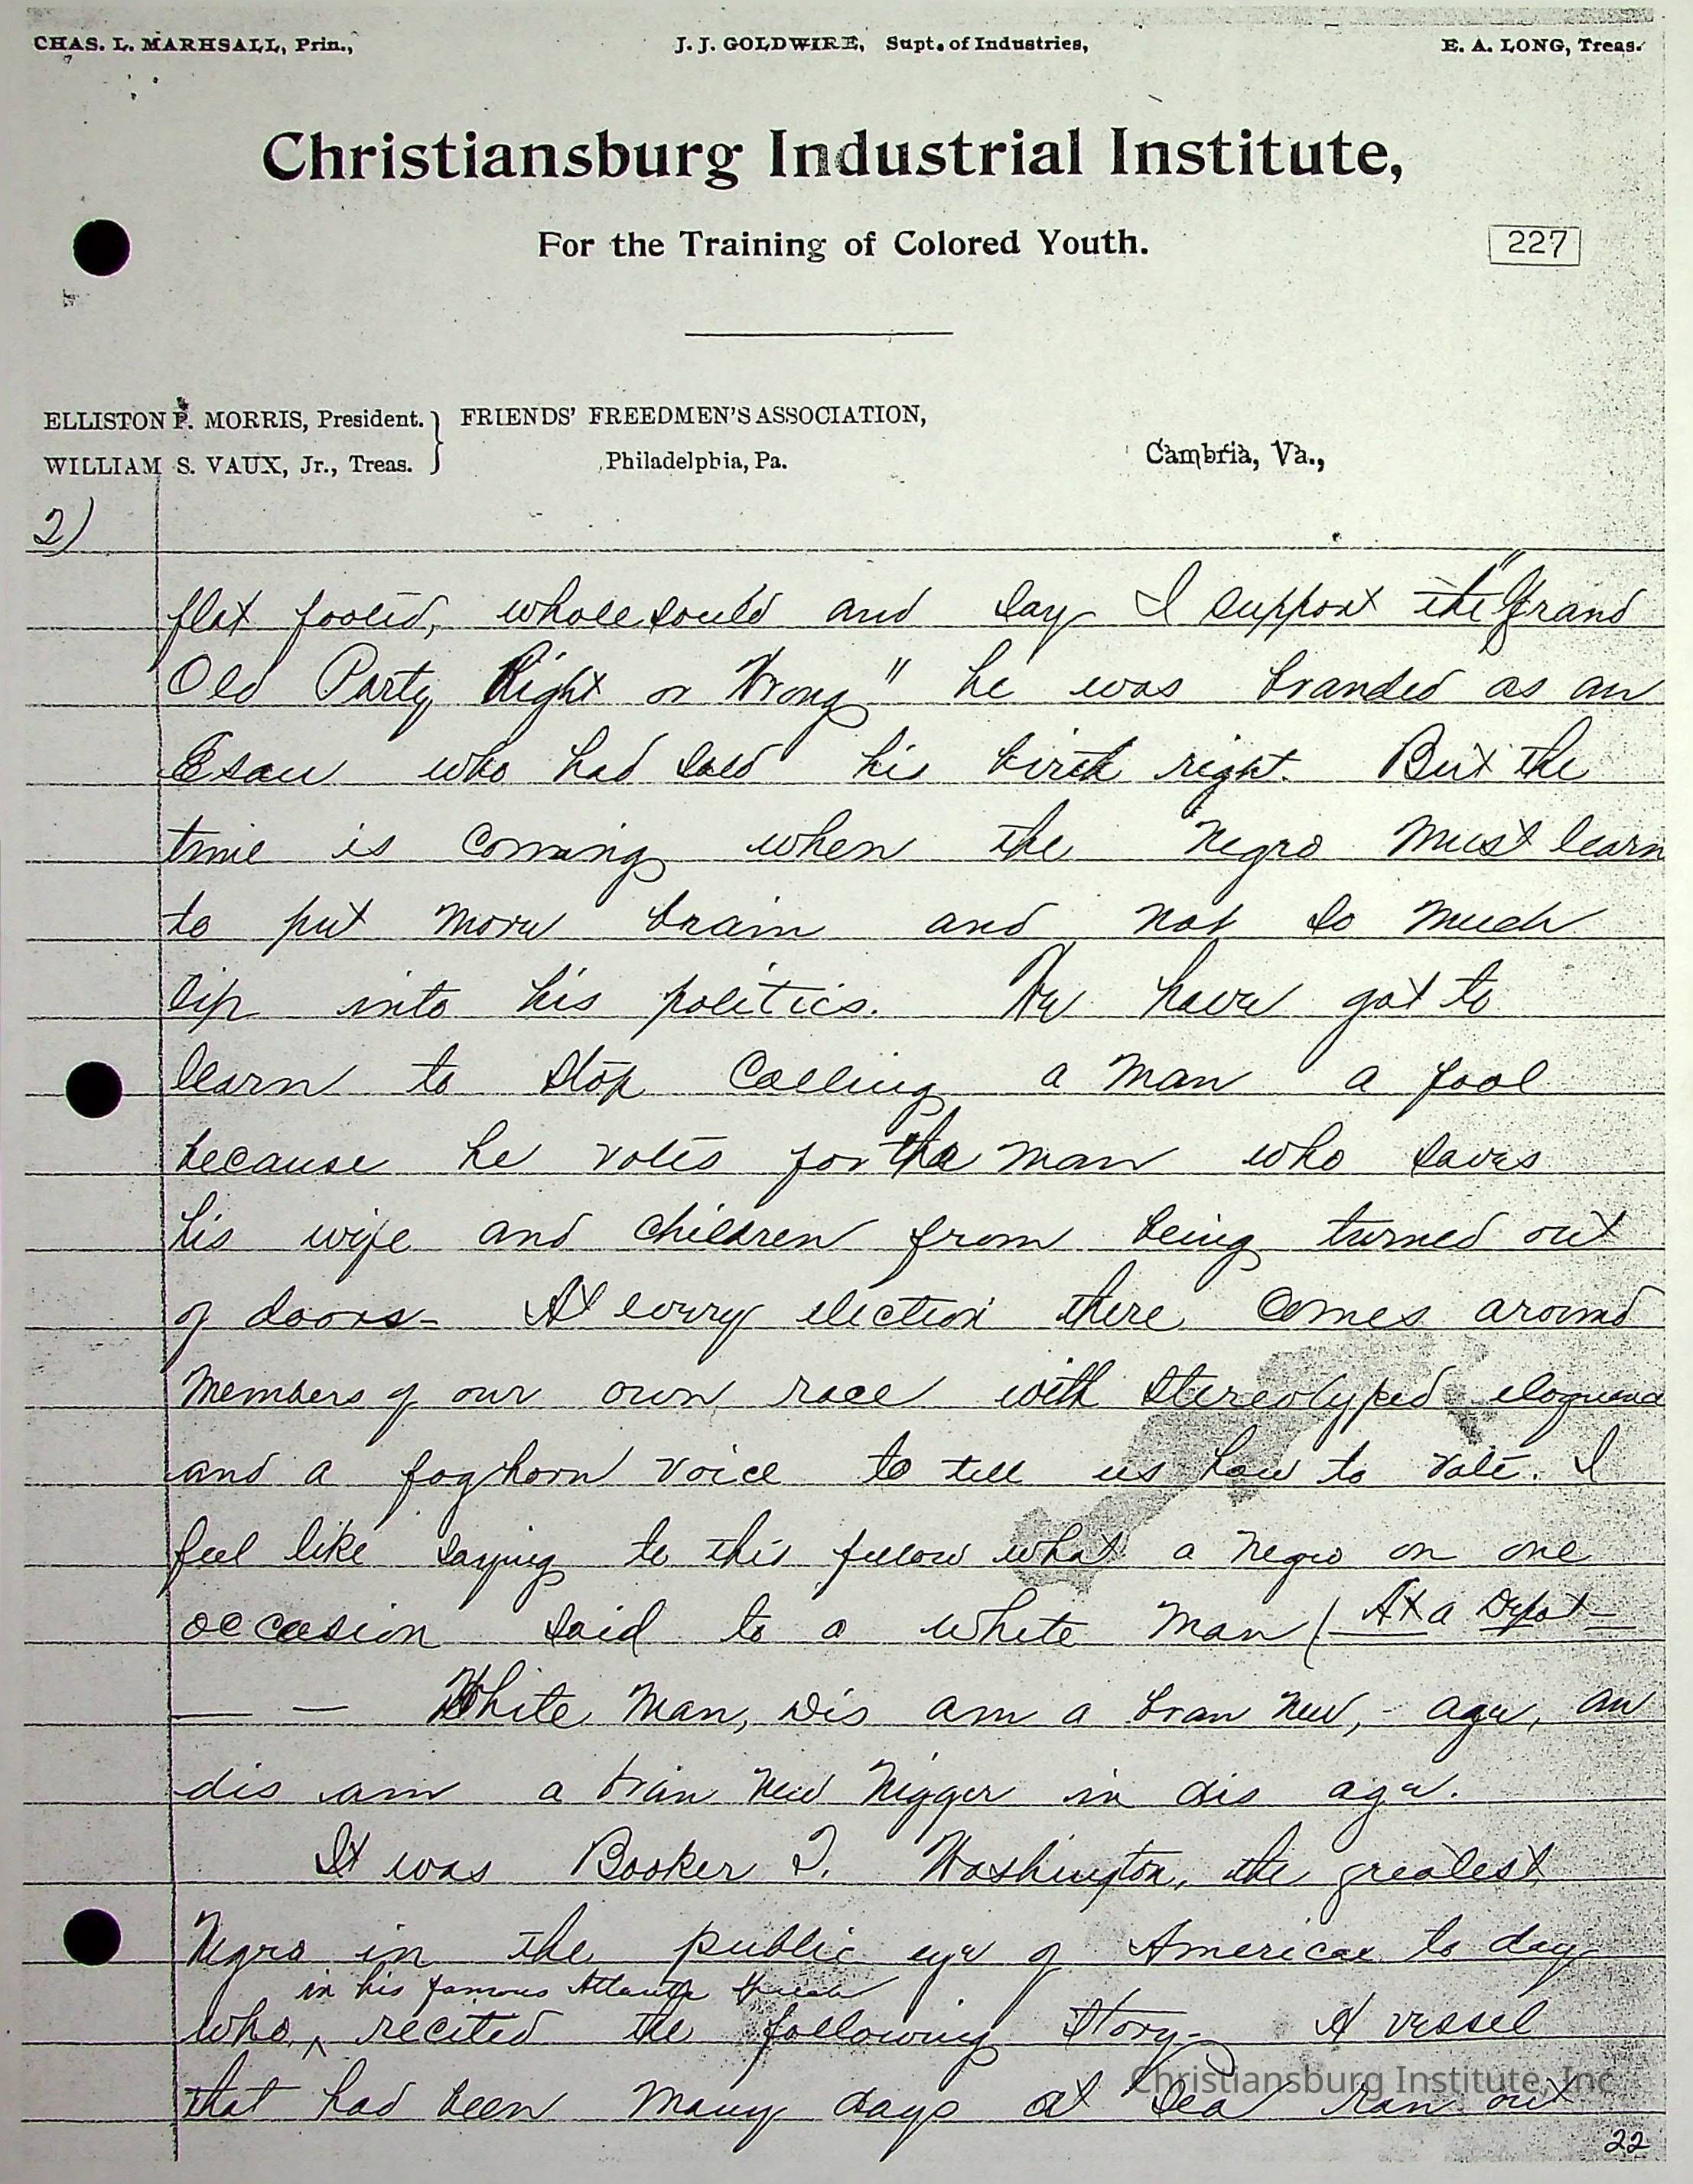 CHAS. L. MARHSALL, Prin., J. J. GOLDWIRE, Supt. of Industries, E. A. LONG, Treas.
Christiansburg Industrial Institute,
For the Training of Colored Youth.
227
ELLISTON P. MORRIS, President. } FRIENDS' FREEDMEN'S ASSOCIATION,
WILLIAM S. VAUX, Jr., Treas. Philadelphia, Pa. Cambria, Va.,
2)
flat footed, wholesouled and say I support the "Grand
Old Party Right or Wrong" he was branded as an
Esau who had sold his birth right. But the
time is coming when the Negro must learn
to put more brain and not so much
lip into his politics. We have got to
learn to stop calling a man a fool
because he votes for the man who saves
his wife and children from being turned out
of doors- At every election there comes around
members of our own race with stereotyped eloquence
and a foghorn voice to tell us how to vote. I
feel like saying to this fellow what a Negro on one
occasion said to a white man (At a Depot-
— — White Man, dis am a bran new, - age, an
dis am a bran new Nigger in dis age.
It was Booker T. Washington, the greatest
Negro in the public eye of America to day
in his famous Atlanta Speech
who, ^ recited the following story- A vessel
that had been many days at sea ran out
Christiansburg Institute, Inc
22